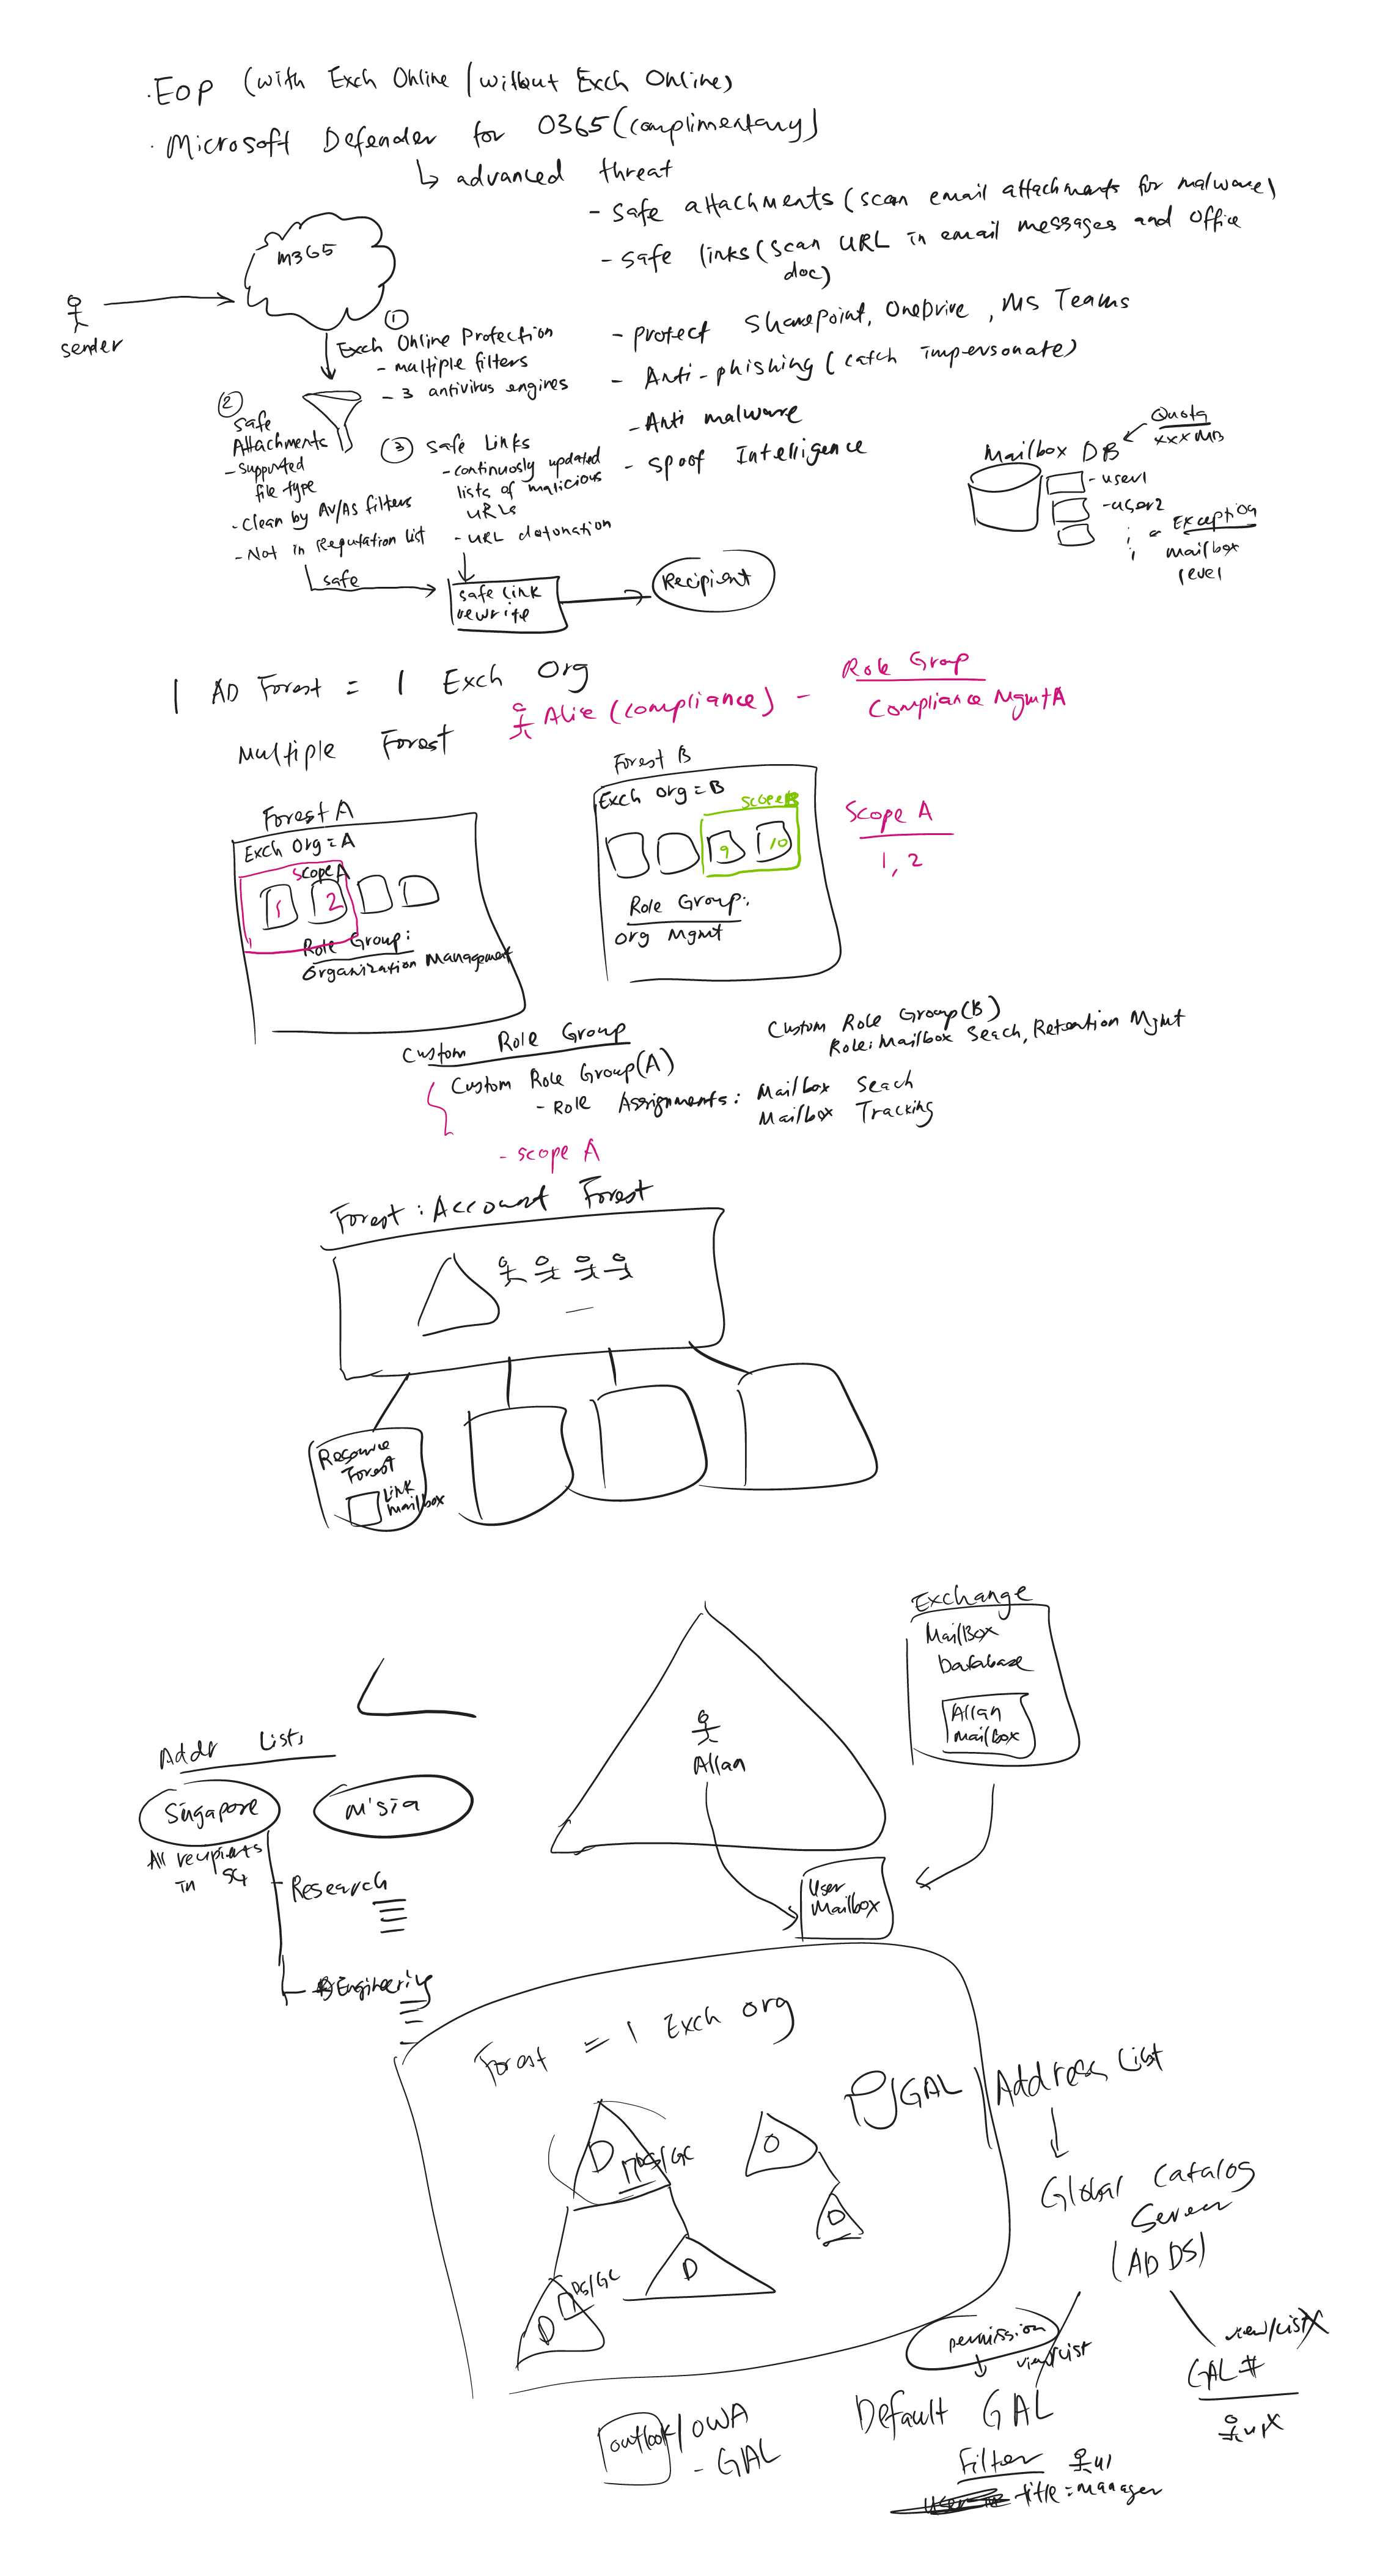 . EOP (with Exch Online / without Exch Online)
. Microsoft Defender for O365 (complimentary)
↳ advanced threat
- Safe attachments (scan email attachments for malware)
- Safe links (scan URL in email messages and office
doc)
- protect Sharepoint, OneDrive, MS Teams
- Anti-phishing (catch impersonate)
- Anti malware
- Spoof Intelligence
M365
sender
①
Exch Online Protection
- multiple filters
- 3 antivirus engines
②
Safe
Attachments
- Supported
file type
- Clean by AV/AS filters
- Not in Reputation List
③ Safe Links
- continuosly updated
lists of malicious
URLs
- URL detonation
safe
safe link
rewrite
Recipient
Quota
xxx MB
Mailbox DB
- user1
- user2
Exception
mailbox
level
1 AD Forest = 1 Exch Org
Alice (compliance) -
Role Group
Compliance Mgmt A
Multiple Forest
Forest A
Exch Org = A
Scope A
1 2
Role Group:
Organization Management
Forest B
Exch Org = B
Scope B
9 10
Role Group:
Org Mgmt
Scope A
1, 2
Custom Role Group
Custom Role Group (A)
- Role Assignments: Mailbox Seach
Mailbox Tracking
- scope A
Custom Role Group (B)
Role: Mailbox Seach, Retention Mgmt
Forest: Account Forest
Resource
Forest
Link
mailbox
Exchange
MailBox
Database
Allan
mailbox
Allan
User
Mailbox
Addr Lists
Singapore
M'sia
All recipients
in SG
- Research
Engineering
Forest = 1 Exch org
D
DS/GC
D
DS/GC
D
D
D
GAL / Address List
Global Catalog
Server
(AD DS)
permission
view/list
Default GAL
Filter u1
title = manager
view/list X
GAL #
u1 X
outlook / OWA
- GAL